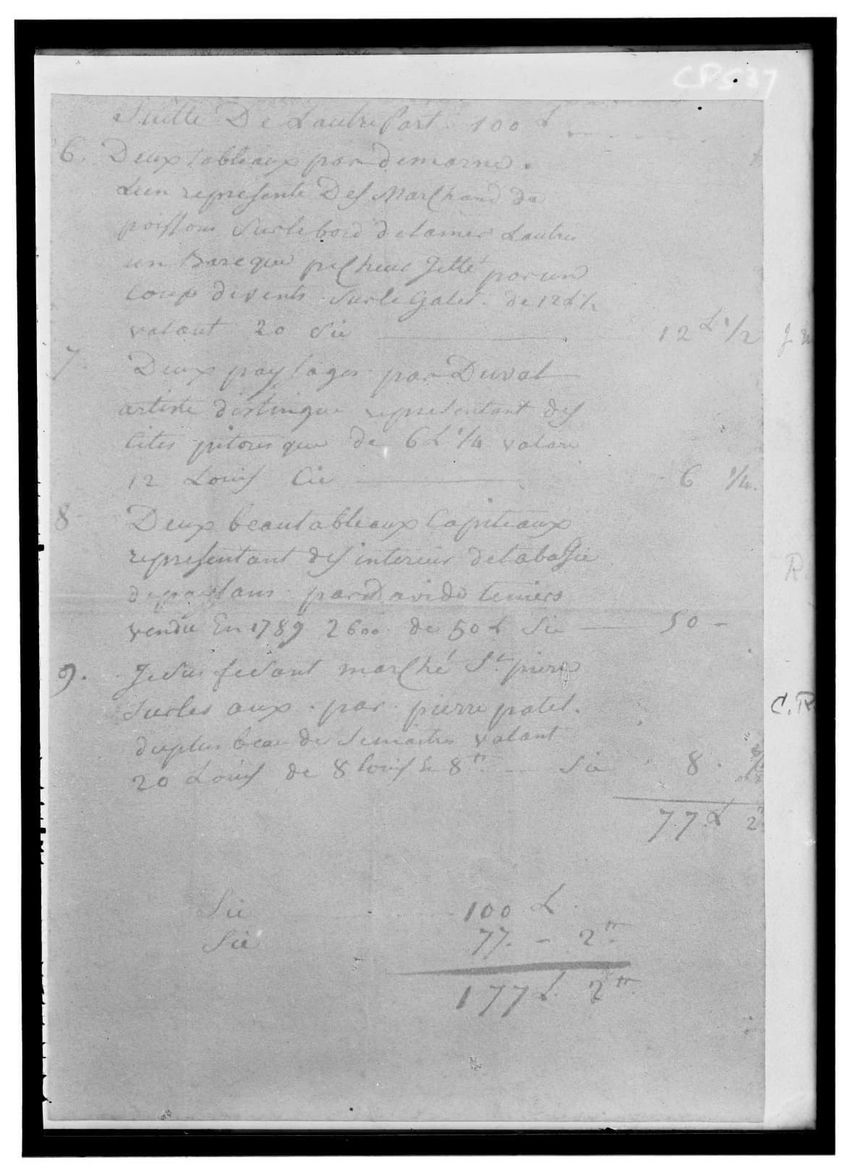 CPS 37
Suitte De Lautre Part. 100 L
6. Deux tableaux par demarne.
Lun represente Des Marchand de
poissons sur le bord de la mer Lautre
un Barque pecheur Jetté par un
coup de vents sur le Galet. de 12 L ½
valant 20 Sie 12 L ½
7. Deux paysages par Duval
artiste distingue representant des
sites pitoresque de 6 L ¼ valant
12 Louis Cie 6 ¼
8 Deux beau tableaux Capiteaux
representant des interieur de tabassie
de paysans par Davide teniers
vendu En 1789 2600 de 50 L Sie 50 -
9. Jesus fesant marché St pierre
sur les aux . par pierre patel.
du plus beau de Semaitre valant
20 Louis de 8 louis & 8 tt Sie 8.
C.R.
77 L 2
Sie 100 L
Sie 77. - 2 tt
177 L 2 tt